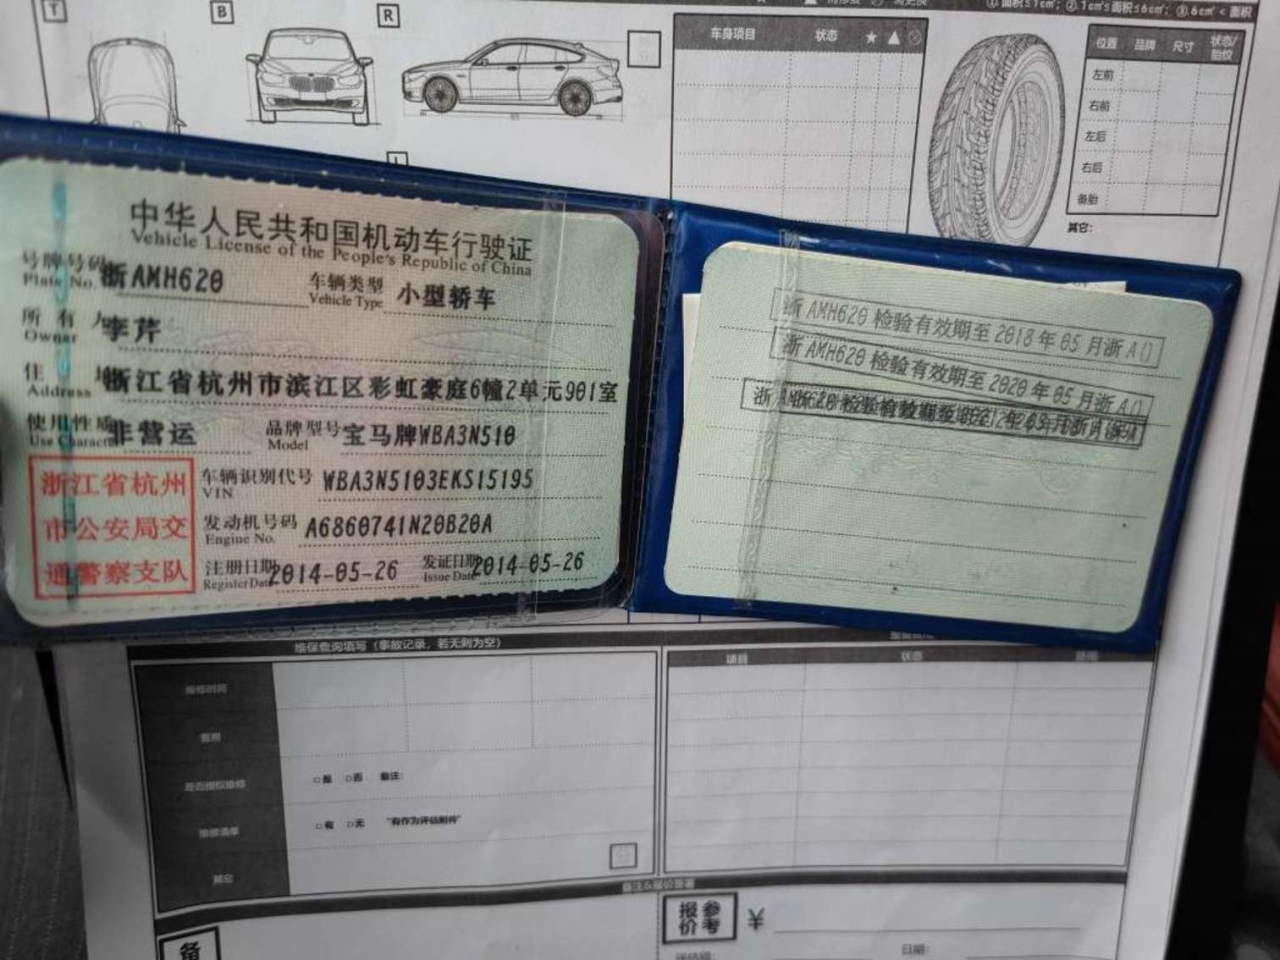 T
B
R
①.面积≤1cm²; ②.1cm²≤面积≤6cm²; ③.6cm²<面积
车身项目 状态 ★ ▲
位置 品牌 尺寸 状态/胎纹
左前
右前
左后
右后
备胎
其它:
中华人民共和国机动车行驶证
Vehicle License of the People's Republic of China
号牌号码 浙AMH620 车辆类型 小型轿车
Plate No. Vehicle Type
所有人 李芹
Owner
住址 浙江省杭州市滨江区彩虹豪庭6幢2单元901室
Address
使用性质 非营运 品牌型号 宝马牌WBA3N510
Use Character Model
浙江省杭州
市公安局交
通警察支队
车辆识别代号 WBA3N5103EKS15195
VIN
发动机号码 A6860741N20B20A
Engine No.
注册日期 2014-05-26 发证日期 2014-05-26
Register Date Issue Date
浙AMH620检验有效期至2018年05月浙A()
浙AMH620检验有效期至2020年05月浙A()
维保查询填写（事故记录，若无则为空）
维修时间
费用
是否授权维修 □是 □否 备注:
维修清单 □有 □无 "有作为评估附件"
其它
项目 状态
备
报价参考 ¥
日期: